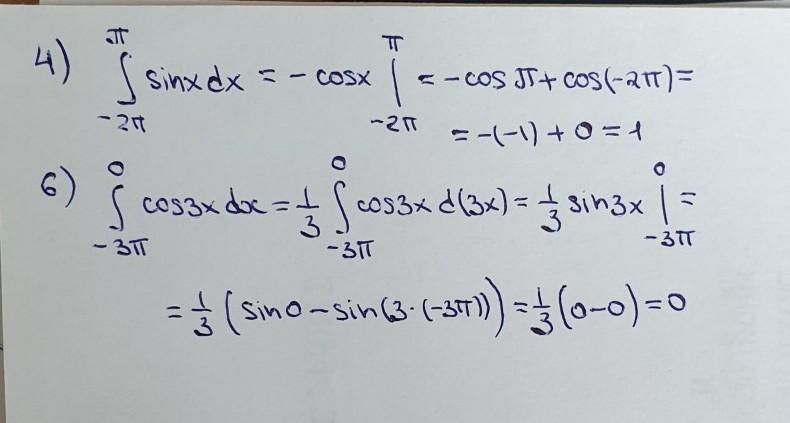 4) ∫_{-2π}^{π} sinx dx = - cosx |_{-2π}^{π} = -cos π + cos(-2π) =
= -(-1) + 0 = 1
6) ∫_{-3π}^{0} cos3x dx = 1/3 ∫_{-3π}^{0} cos3x d(3x) = 1/3 sin3x |_{-3π}^{0} =
= 1/3 (sin0 - sin(3·(-3π))) = 1/3 (0-0) = 0